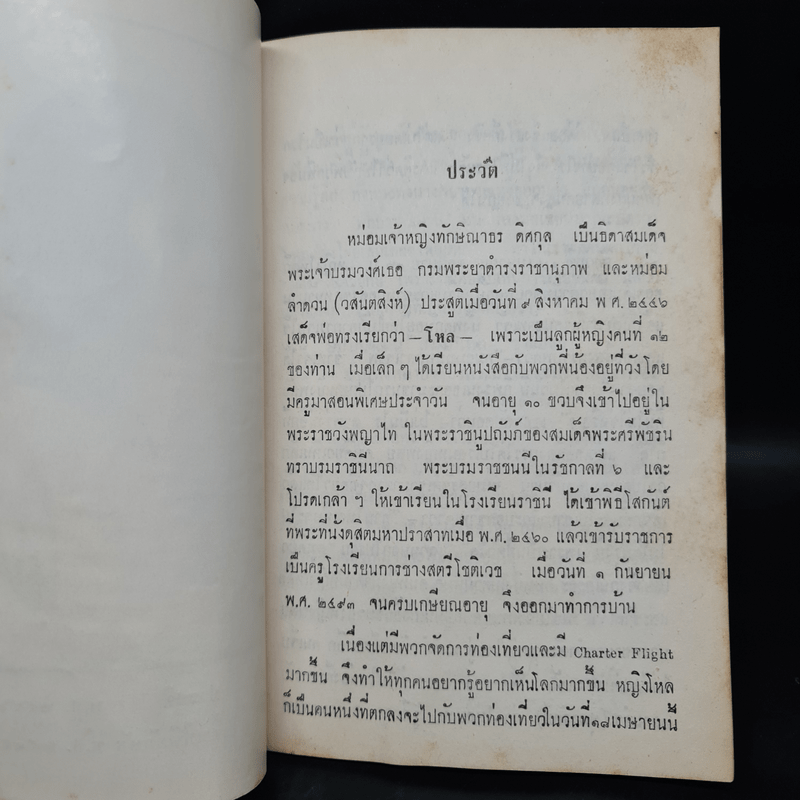 ประวัติ
หม่อมเจ้าหญิงทักษิณาธร ดิศกุล เป็นธิดาสมเด็จ
พระเจ้าบรมวงศ์เธอ กรมพระยาดำรงราชานุภาพ และหม่อม
ลำดวน (วสันตสิงห์) ประสูติเมื่อวันที่ ๙ สิงหาคม พ ศ. ๒๔๔๖
เสด็จพ่อทรงเรียกว่า —โหล— เพราะเป็นลูกผู้หญิงคนที่ ๑๒
ของท่าน เมื่อเล็ก ๆ ได้เรียนหนังสือกับพวกพี่น้องอยู่ที่วังโดย
มีครูมาสอนพิเศษประจำวัน จนอายุ ๑๐ ขวบจึงเข้าไปอยู่ใน
พระราชวังพญาไท ในพระราชินูปถัมภ์ของสมเด็จพระศรีพัชริน
ทราบรมราชินีนาถ พระบรมราชชนนีในรัชกาลที่ ๖ และ
โปรดเกล้า ฯ ให้เข้าเรียนในโรงเรียนราชินี ได้เข้าพิธีโสกันต์
ที่พระที่นั่งดุสิตมหาปราสาทเมื่อ พ.ศ. ๒๔๖๐ แล้วเข้ารับราชการ
เป็นครูโรงเรียนการช่างสตรีโชติเวช เมื่อวันที่ ๑ กันยายน
พ.ศ. ๒๔๙๓ จนครบเกษียณอายุ จึงออกมาทำการบ้าน
เนื่องแต่มีพวกจัดการท่องเที่ยวและมี Charter Flight
มากขึ้น จึงทำให้ทุกคนอยากรู้อยากเห็นโลกมากขึ้น หญิงโหล
ก็เป็นคนหนึ่งที่ตกลงจะไปกับพวกท่องเที่ยวในวันที่ ๑๘ เมษายนนี้